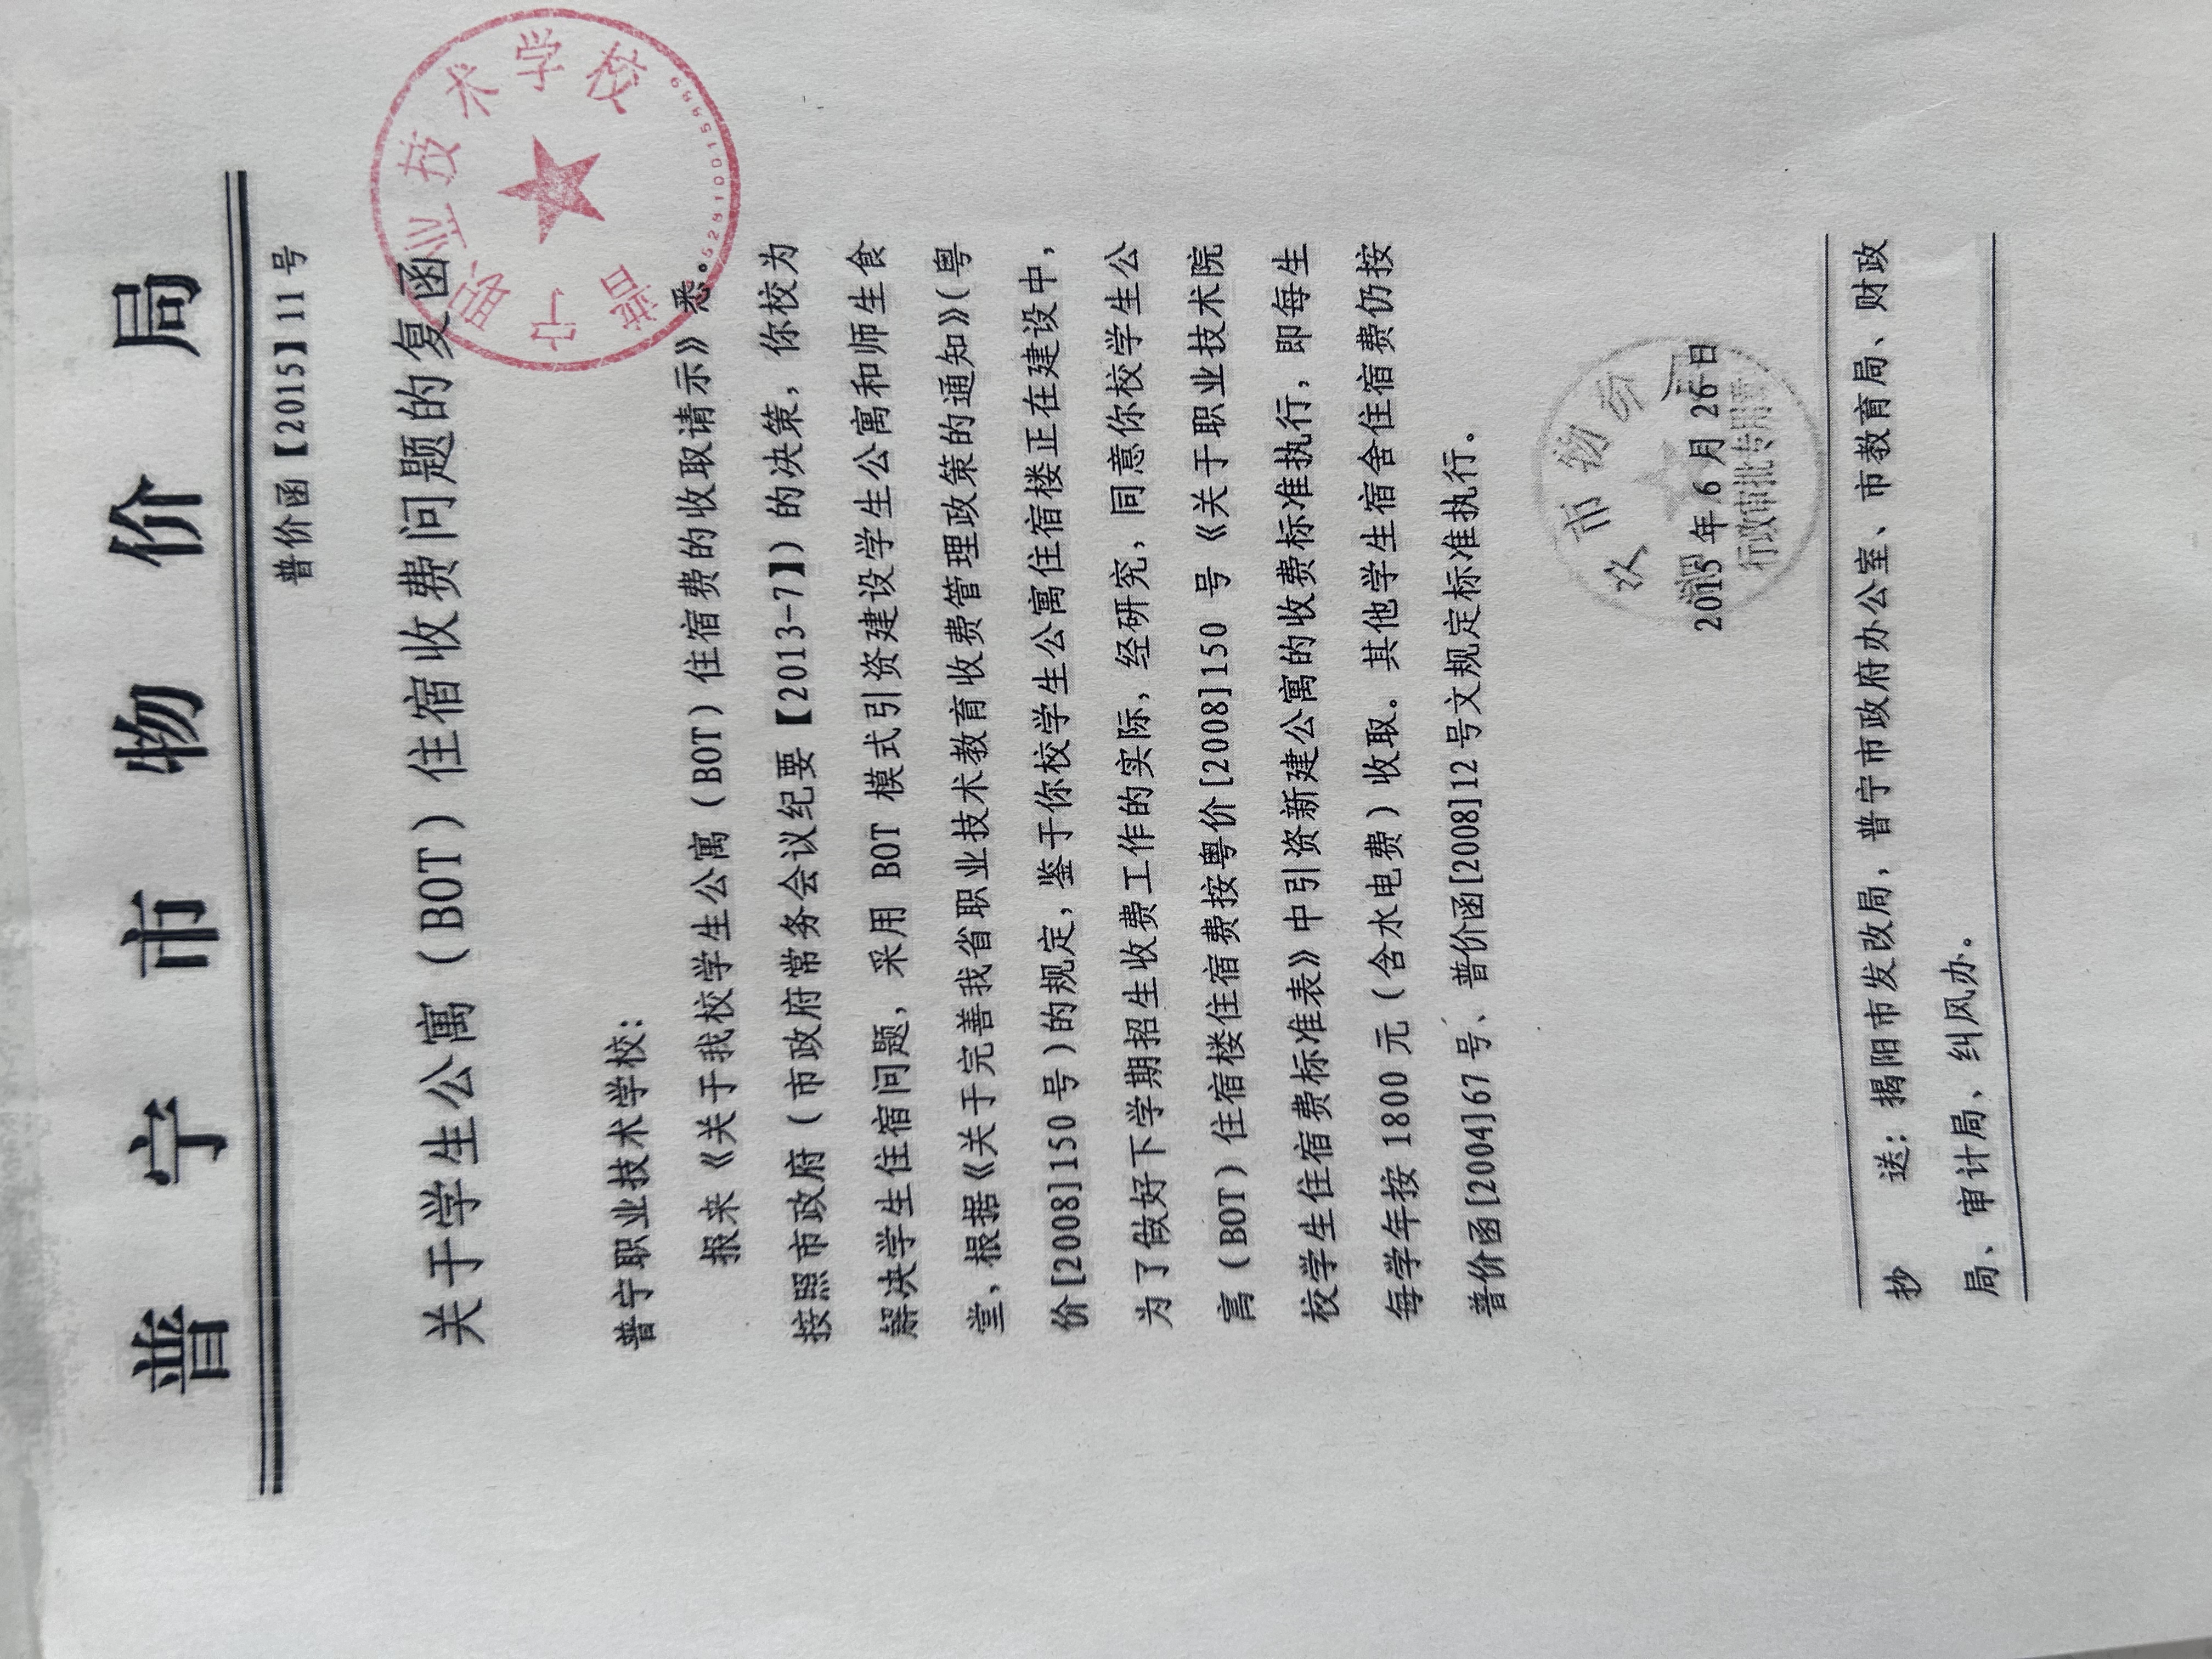 普宁市物价局
普价函【2015】11号
关于学生公寓（BOT）住宿收费问题的复函
普宁职业技术学校
52810015989
普宁职业技术学校：
报来《关于我校学生公寓（BOT）住宿费的收取请示》悉。
按照市政府（市政府常务会议纪要【2013-7】）的决策，你校为
解决学生住宿问题，采用 BOT 模式引资建设学生公寓和师生食
堂，根据《关于完善我省职业技术教育收费管理政策的通知》（粤
价[2008]150号）的规定，鉴于你校学生公寓住宿楼正在建设中，
为了做好下学期招生收费工作的实际，经研究，同意你校学生公
寓（BOT）住宿楼住宿费按粤价[2008]150 号《关于职业技术院
校学生住宿费标准表》中引资新建公寓的收费标准执行，即每生
每学年按 1800 元（含水电费）收取。其他学生宿舍住宿费仍按
普价函[2004]67号、普价函[2008]12号文规定标准执行。
市物价局
2015年6月26日
行政审批专用章
抄 送：揭阳市发改局，普宁市政府办公室、市教育局、财政
局、审计局、纠风办。